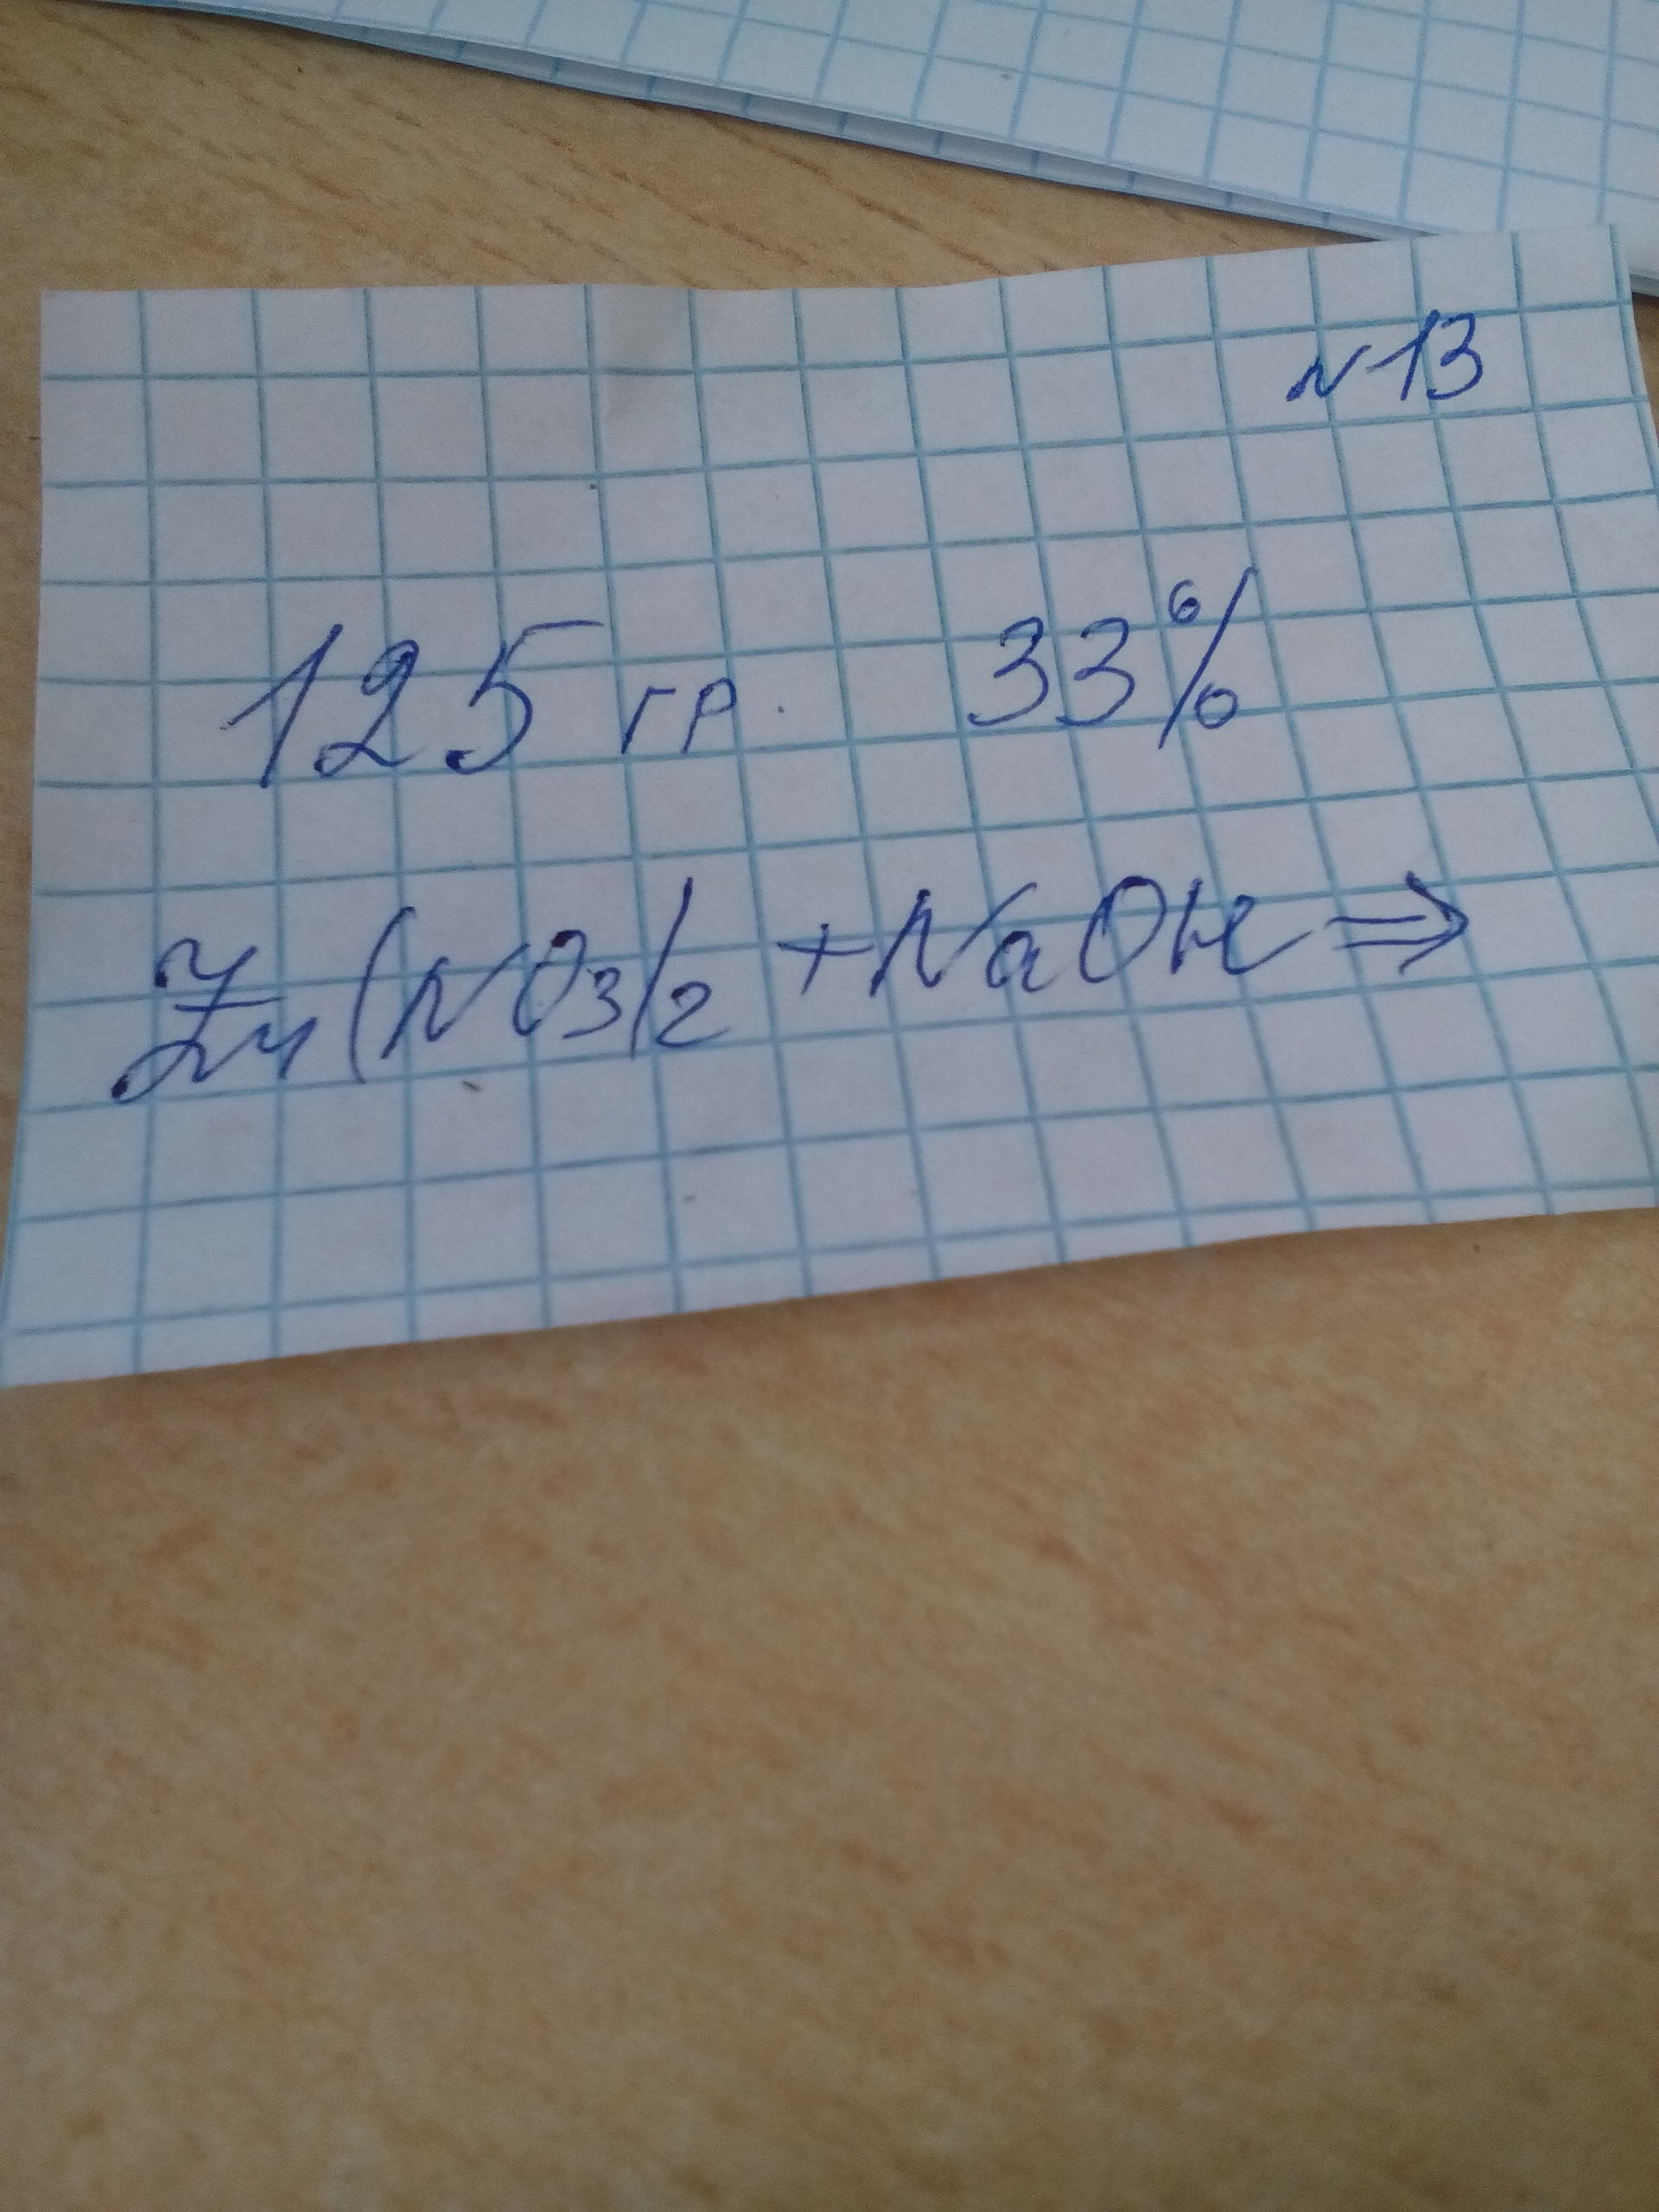 N13
125 гр. 33%
Zn(NO3)2 + NaOH ⇒